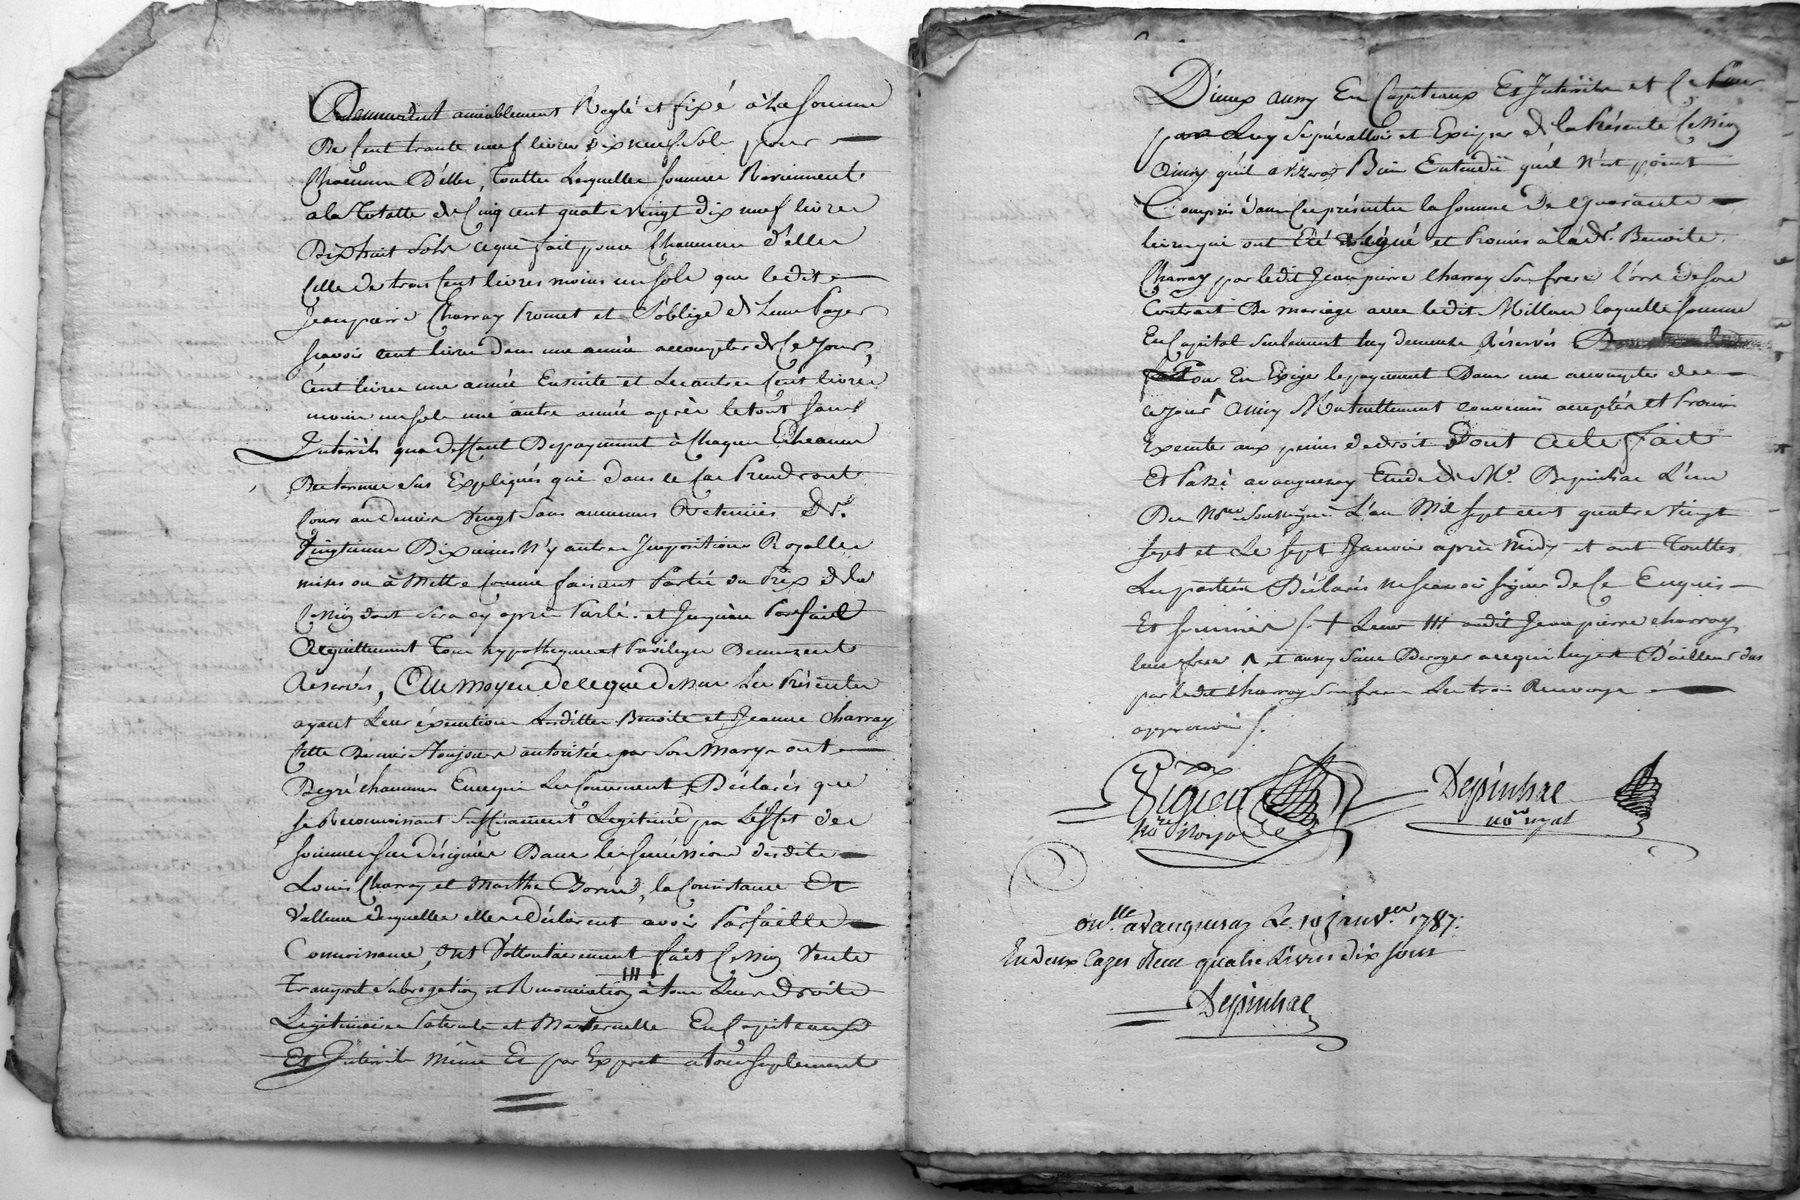 amiablement Reglé et fixé à la somme
De Cent trante neuf livres dix neuf Sols pour
Chacunne D'elles, Touttes Lesquelles sommes Reviennent
a la Totalle de Cinq cent quatre vingt dix neuf livres
Dix huit Sols ce qui fait pour Chacunne d'elles
Celle de trois Cent livres moins un sols que ledit
Jean pierre Charray Promet et S'oblige de Leur Payer
scavoir cent livres dans une année acompter de Ce jour,
Cent livres une année Ensuite et Les autres Cent livres
moins un sols une autre année après le tout sans
Interèts qua deffaut De payement à Chaque Echeance
Des termes sus Expliqués qui dans ce Cas Prendront
Cours au denier Vingt Sans aucunnes Retenües De
Vingtiemes Dixiemes N'y autres Impositions Royalles
mises ou à Mettre Comme faisant Partie du Prix de la
Cession dont sera cy après Parlé. et Jusquau Parfait
Acquittement Tous hypotheques et Privileges Demeurent
Réservés, Au Moyen De ce que Dessus Les Présentes
ayant Leur éxecution Lesdittes Benoite et Jeanne Charray
Cette Derniere Toujours autorisée par Son Mary ont
Degré chacunne En ce qui Les Concernent, Déclarés que
se Reconnoissant Suffisamment Legitimé par L'effet des
sommes sus désignées Dans les successions desdits
Louis Charray et Marthe, la Consistance Et
Valleur desquelles elles déclarent avoir Parfaitte
Connoissance, ont Vollontairement fait Cession Vente
Transport Subrogation et Renonciation III à tous Leurs Droits
Legitimaires Paternels et Maternels En Capiteaux
Et Interèts même Et par Exprès à tous suplement
D'iceux aussy En Capiteaux Et Interèts et Ce Pour
par Luy se prévalloir et Exciper de la Présente Cession
Ainsy qu'il avizera Bien Entendü qu'il N'est point
Compris dans Ces présentes la somme De Quarante
livres qui ont Eté et Promis à ladte Benoite
Charray par ledit Jean pierre Charray Son frere lors de son
Contrat De mariage avec ledit Millon laquelle somme
En Capital seulement luy demeure Réservés
Pour En Exiger le payement Dans une acompter de
ce jour ^ Ainsy Mutuellement convenü accepté et Promis
Executer aux peines de droit Dont Acte fait
Et Passé a vaugneray Etude de Me Depinhac L'un
Des Nres soussignés L'an Mil sept cent quatre vingt
sept et Le sept Janvier après midy et ont Touttes
Les parties Déclarés ne scavoir signer de Ce Enquis
Et sommées /. + Leur III audit Jean pierre Charray
leur frere ^ et aussy sans Deroger a ce qui luy est D'ailleurs dus
par ledit Charray son frere Les trois Renvoys
approuvés /.
Depinhac
nore royal
nore Royal
onlle a Vaugneray Le 19 janver 1787.
En deux Cazes Reçu quatre Livres dix sous
Depinhac